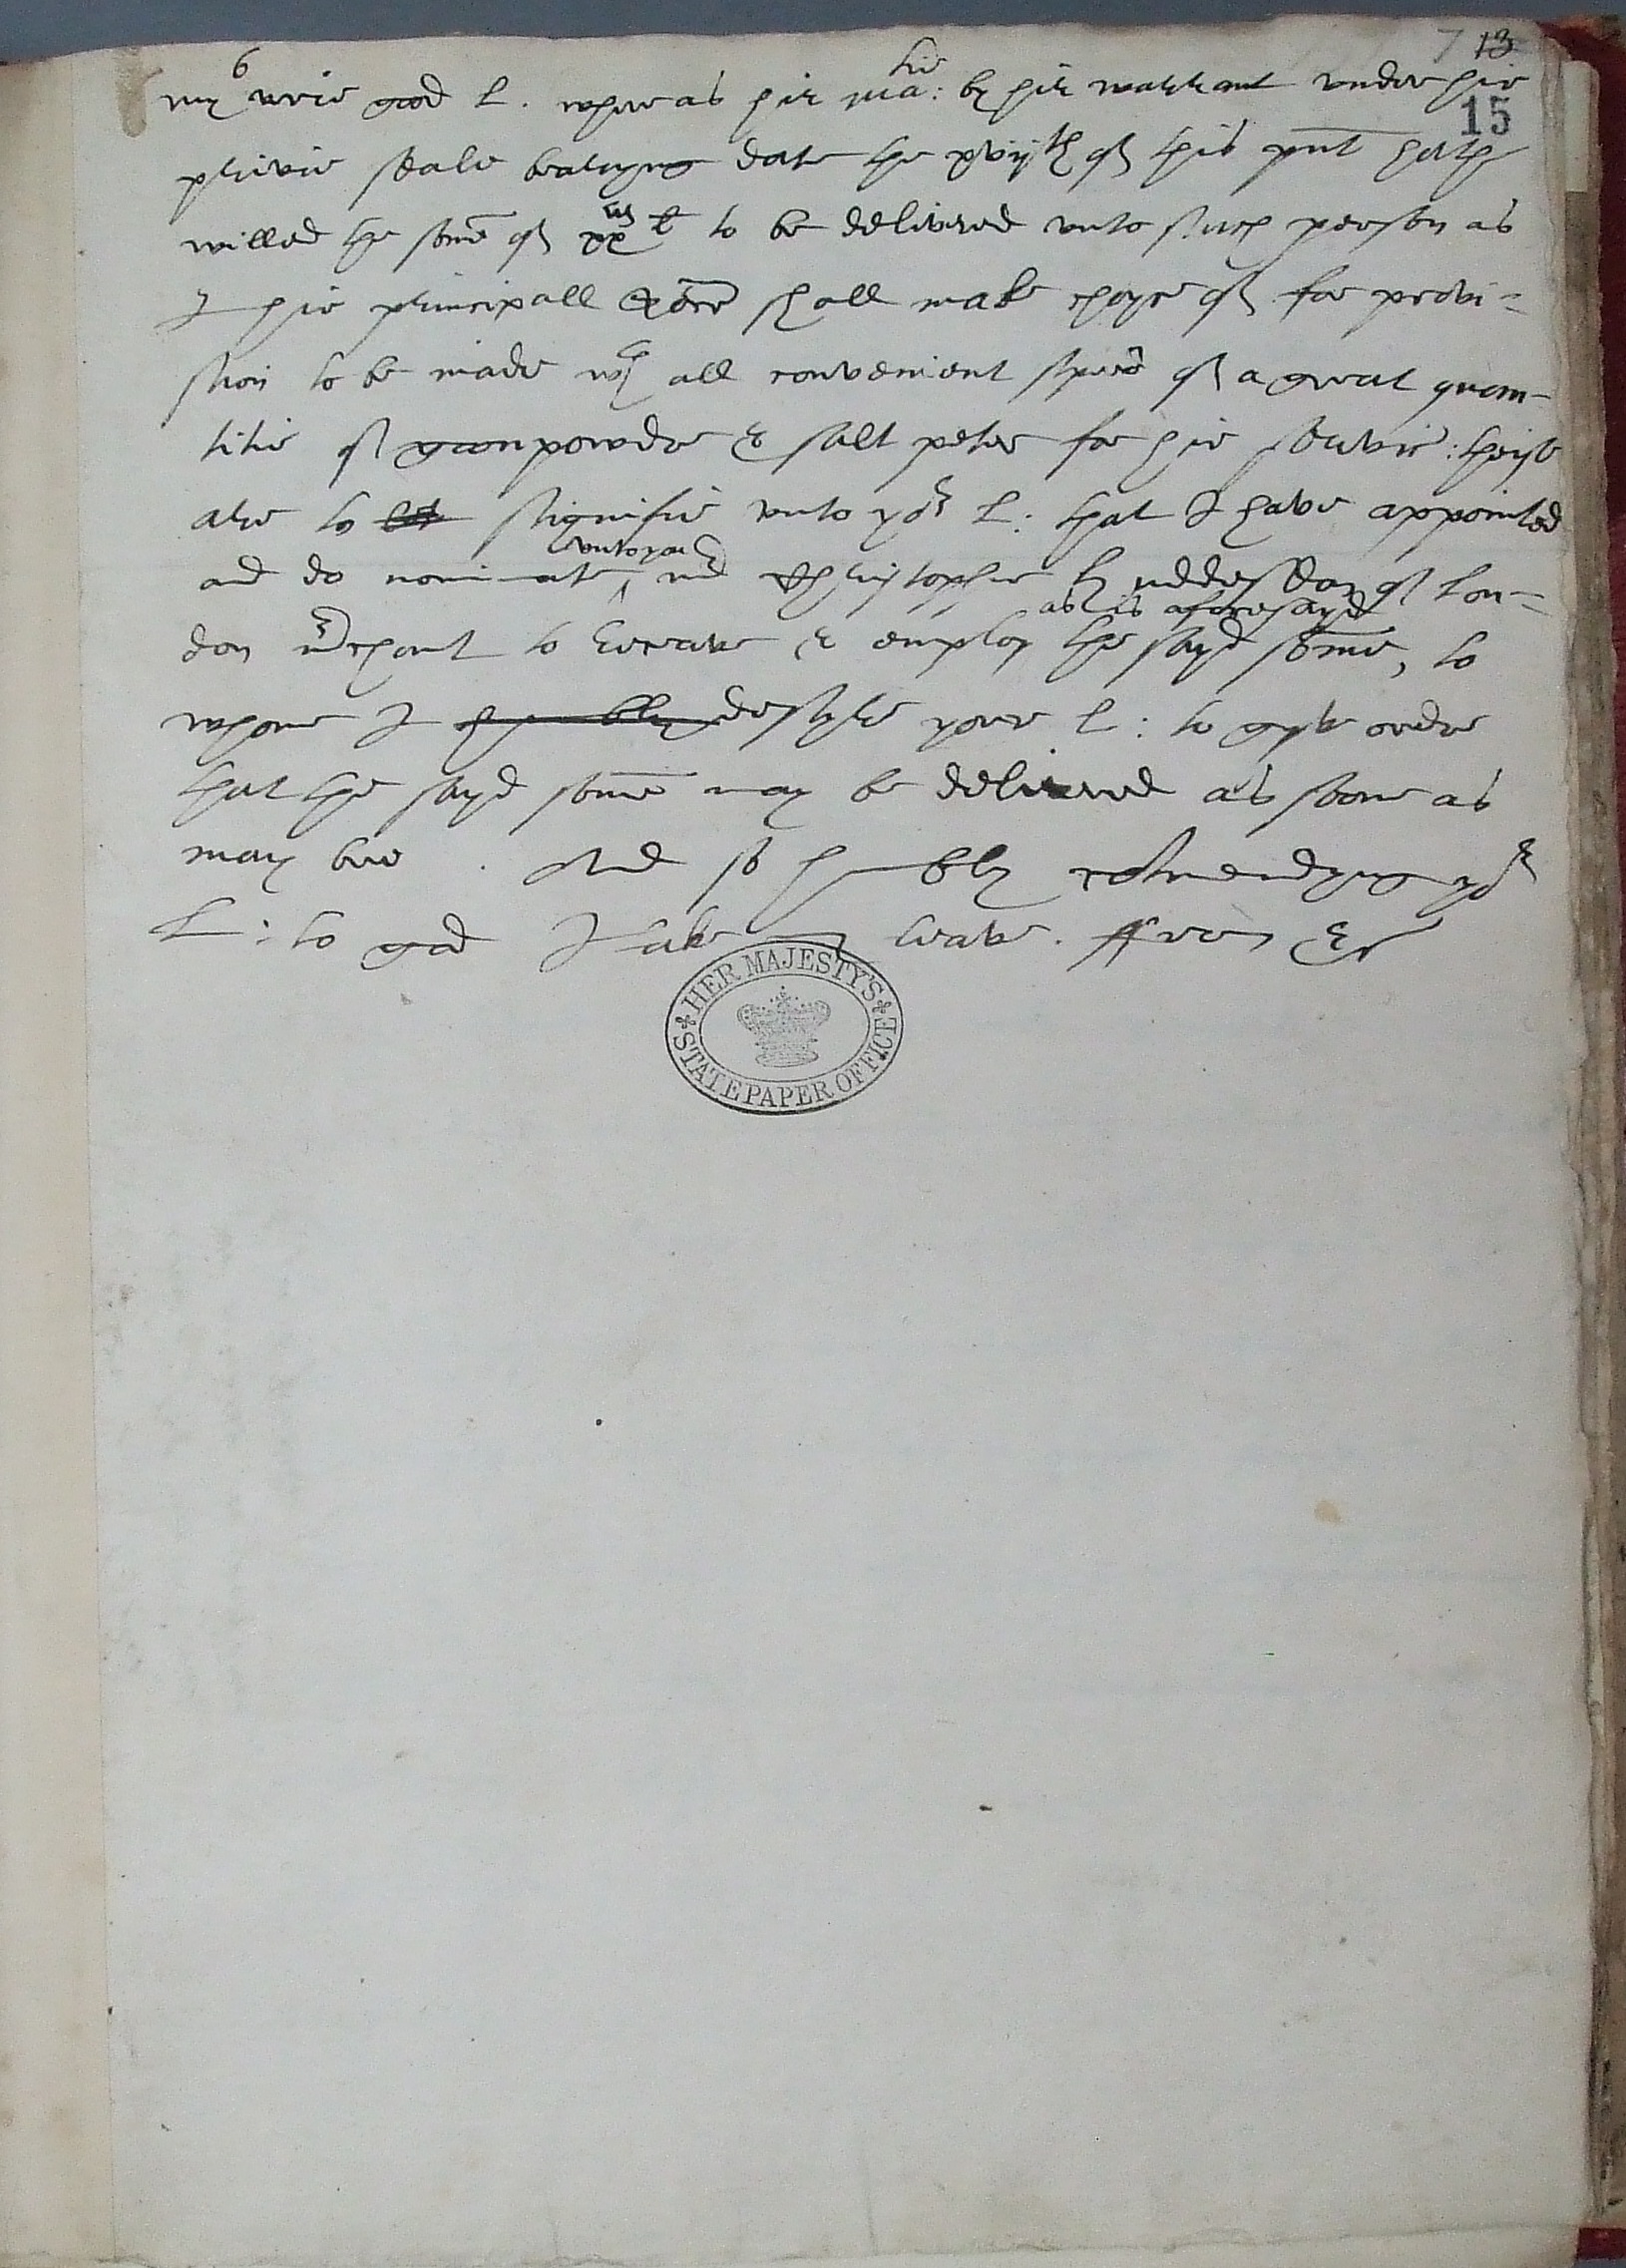 7 13
15
6
my verie good L. whereas hir Ma:tie by hir warrant vnder hir
privie seale bearyng date the xviijth of this pnt hath
willed the some of xxm l to be delivered vnto such person as
I hir principall Secre shall make choyse of for provi=
sion to be made wch all convenient spede of a great quan-
titie of gunpowder & salt peter for hir servic: theise
are to let signifie vnto yor L: that I have appointed
and do nominate vnto you mr Christopher Huddesdon of Lon=
don mrchant to receave & employ the sayd some as is aforesayd, to
whome I humbly desyre your L: to gyve order
that the sayd some may be delivered as soone as
may bee. And so humbly comendyng yor
L: to god I take my leave. ffrom &c
HER MAJESTY'S STATE PAPER OFFICE